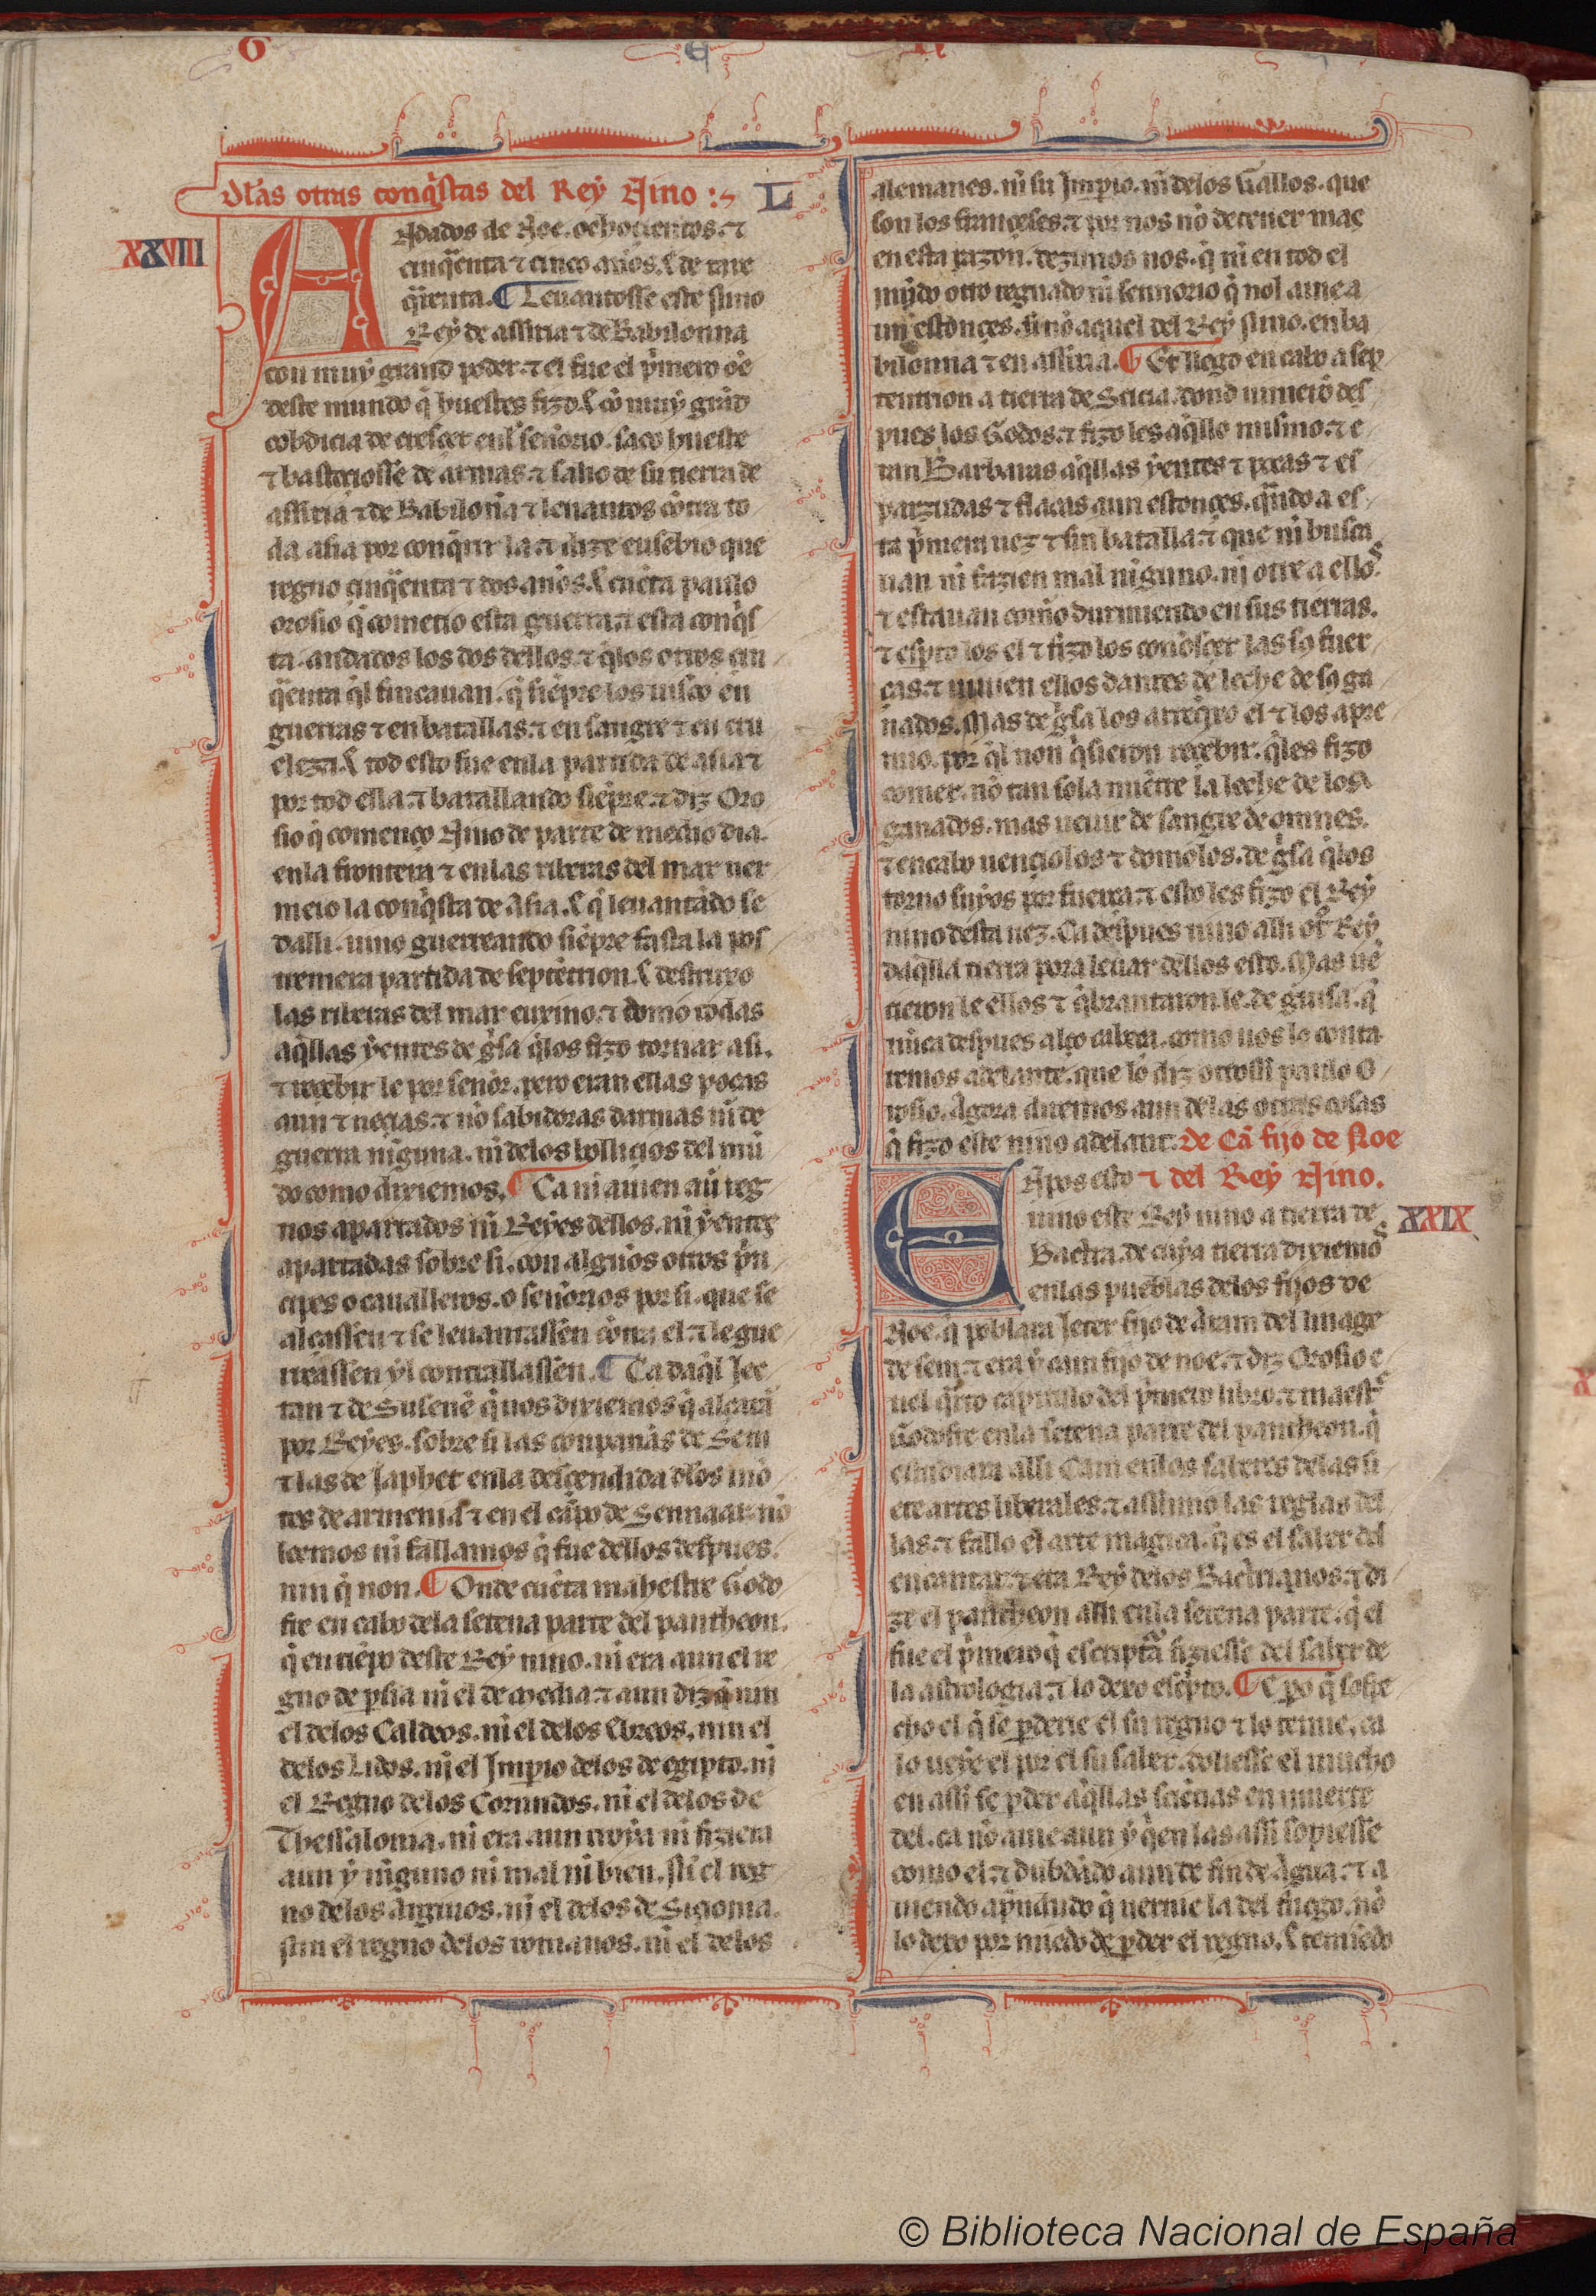 G
Dlas otras conq̃stas del Rey Nino :~ L
XXVIII
Andados de Noe. ochoçientos. ⁊
cinq̃enta ⁊ cinco años. ⁊ de tare
q̃renta. ¶ Leuantosse este nino
Rey de assiria ⁊ de Babilonna
con muy grand poder. ⁊ el fue el p̃mero õe
deste mundo q̃ huestes fizo. ⁊ cõ muy grãd
cobdicia de cresçer enl señorio. saco hueste
⁊ basteciosse de armas. ⁊ salio de su tierra de
assiria ⁊ de Babiloña ⁊ leuantos cõtra to
da asia por conq̃rir la. ⁊ dize eusebio que
regno cinq̃enta ⁊ dos años. ⁊ cuẽta paulo
orosio q̃ cometio esta guerra. ⁊ esta conq̃s
ta. andados los dos dellos. ⁊ q̃los otros cin
q̃enta q̃l fincauan. q̃ siẽpre los uisco en
guerras ⁊ en batallas. ⁊ en sangre ⁊ en cru
eleza. ⁊ tod esto fue enla partida de asia ⁊
por tod ella. ⁊ batallando siẽpre. ⁊ diz Oro
sio q̃ començo Nino de parte de medio dia.
enla frontera ⁊ enlas riberas del mar uer
meio la conq̃sta de Asia. ⁊ q̃ leuantãdo se
dalli. uino guerreando siẽpre fasta la pos
tremera partida de septẽtrion. ⁊ destruxo
las riberas del mar euxino. ⁊ domo todas
aq̃llas yentes de g̃sa q̃los fizo tornar asi.
⁊ reçebir le por señor. pero eran ellas pocas
aun ⁊ neçias. ⁊ nõ sabidoras darmas ni de
guerra niguna. ni delos bolliçios del mũ
do como dixiemos. ¶ Ca ni auien aũ reg
nos apartados ni Reyes dellos. ni yentes
apartadas sobre si. con algunos otros p̃n
cipes o caualleros. o señorios por si. que se
alçassen ⁊ se leuantassen cõtra el. ⁊ le gue
rreassen yl contrallassen. ¶ Ca daq̃l Jec
tan ⁊ de Sulenẽ q̃ uos dixiemos q̃ alçarã
por Reyes. sobre si las conpanas de Sem
⁊ las de Japhet enla desçendida dlos mõ
tes de armenia ⁊ en el cãpo de Sennaar. nõ
leemos ni fallamos q̃ fue dellos despues.
nin q̃ non. ¶ Onde cuẽta mahestre Godo
fre en cabo dela setena parte del pantheon.
q̃ en tiẽpo deste Rey nino. ni era aun el re
gno de p̃sia ni el de media. ⁊ aun diz q̃ nin
el delos Caldeos. ni el delos Ebreos. nin el
delos Lidos. ni el Imp̃io delos de egipto. ni
el Regno delos Corintios. ni el delos de
Thessalonia. ni era aun troya ni fiziera
aun y niguno ni mal ni bien. sin el reg
no delos Arginos. ni el delos de Siçionia.
sin el regno delos romanos. ni el delos
alemanes. ni su Imp̃io. ni delos Gallos. que
son los françeses. ⁊ por nos nõ detener mas
en esta razon. dezimos nos. q̃ ni en tod el
mũdo otro regnado ni sennorio q̃ nol auie a
un estonçes. si nõ aquel del Rey nino. en ba
bilonna ⁊ en assiria. ¶ Et llego en cabo a sep
tentrion a tierra de Scicia. dond uinierõ des
pues los Godos. ⁊ fizo les aq̃llo mismo. ⁊ e
ran Barbaras aq̃llas yentes ⁊ pocas ⁊ es
parzudas ⁊ flacas aun estonçes. q̃ndo a es
ta p̃mera uez ⁊ sin batalla. ⁊ que ni busca
uan ni fazien mal niguno. ni otre a ellos.
⁊ estauan como durmiendo en sus tierras.
⁊ esp̃to los el ⁊ fizo los conosçer las so fuer
ças. ⁊ uiuien ellos dantes de leche de so ga
nados. Mas de g̃sa los arreq̃xo el ⁊ los apre
mio. por q̃l non q̃sieron reçebir. q̃les fizo
comer. nõ tan sola miẽtre la leche de los
ganados. mas beuir de sangre de omnes.
⁊ encabo uençiolos ⁊ domolos. de g̃sa q̃los
torno suyos por fuerça. ⁊ esto les fizo el Rey
nino desta uez. Ca despues uino alli ot̃ Rey
daq̃lla tierra pora leuar dellos esto. Mas uẽ
cieron le ellos ⁊ q̃brantaron le. de guisa. q̃
nũca despues alço cabeça. como uos lo conta
remos adelante. que lo diz otrossi paulo O
rosio. Agora diremos aun delas otras cosas
q̃ fizo este nino adelant. de Cã fijo de Noe
Apos esto ⁊ del Rey Nino.
XXIX
uino este Rey nino a tierra de
Bactra. de cuya tierra dixiemos
enlas pueblas delos fijos de
Noe. q̃ poblara Jeter fijo de Aram del linage
de sem. ⁊ era y aun fijo de noe. ⁊ diz Orosio e
nel q̃rto capitulo del p̃mero libro. ⁊ maest̃
Godofre enla setena parte del pantheon. q̃
estudiara alli Cam enlos saberes delas si
ete artes liberales. ⁊ assumo las reglas del
las. ⁊ fallo el arte magica. q̃ es el saber del
encantar. ⁊ era Rey delos Bactrianos. ⁊ di
ze el pantheon alli enla setena parte. q̃ el
fue el p̃mero q̃ escriptã fiziesse del saber de
la astrologia. ⁊ lo dexo esc̃pto. ¶ E po q̃ sospe
cho el q̃ se p̃derie el su regno ⁊ lo temie. ca
lo ueye el por el su saber. doliesse el mucho
en assi se p̃der aq̃llas sciẽcias en muerte
del. ca nõ auie aun y q̃en las assi sopiesse
como el. ⁊ dubdãdo aun de fin de Agua. ⁊ a
uiendo ap̃ndudo q̃ uernie la del fuego. nõ
lo dexo por miedo de p̃der el regno. ⁊ temiẽdo
© Biblioteca Nacional de España